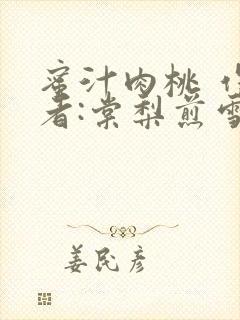 蜜汁肉桃 作
者:棠梨煎雪
姜民彦